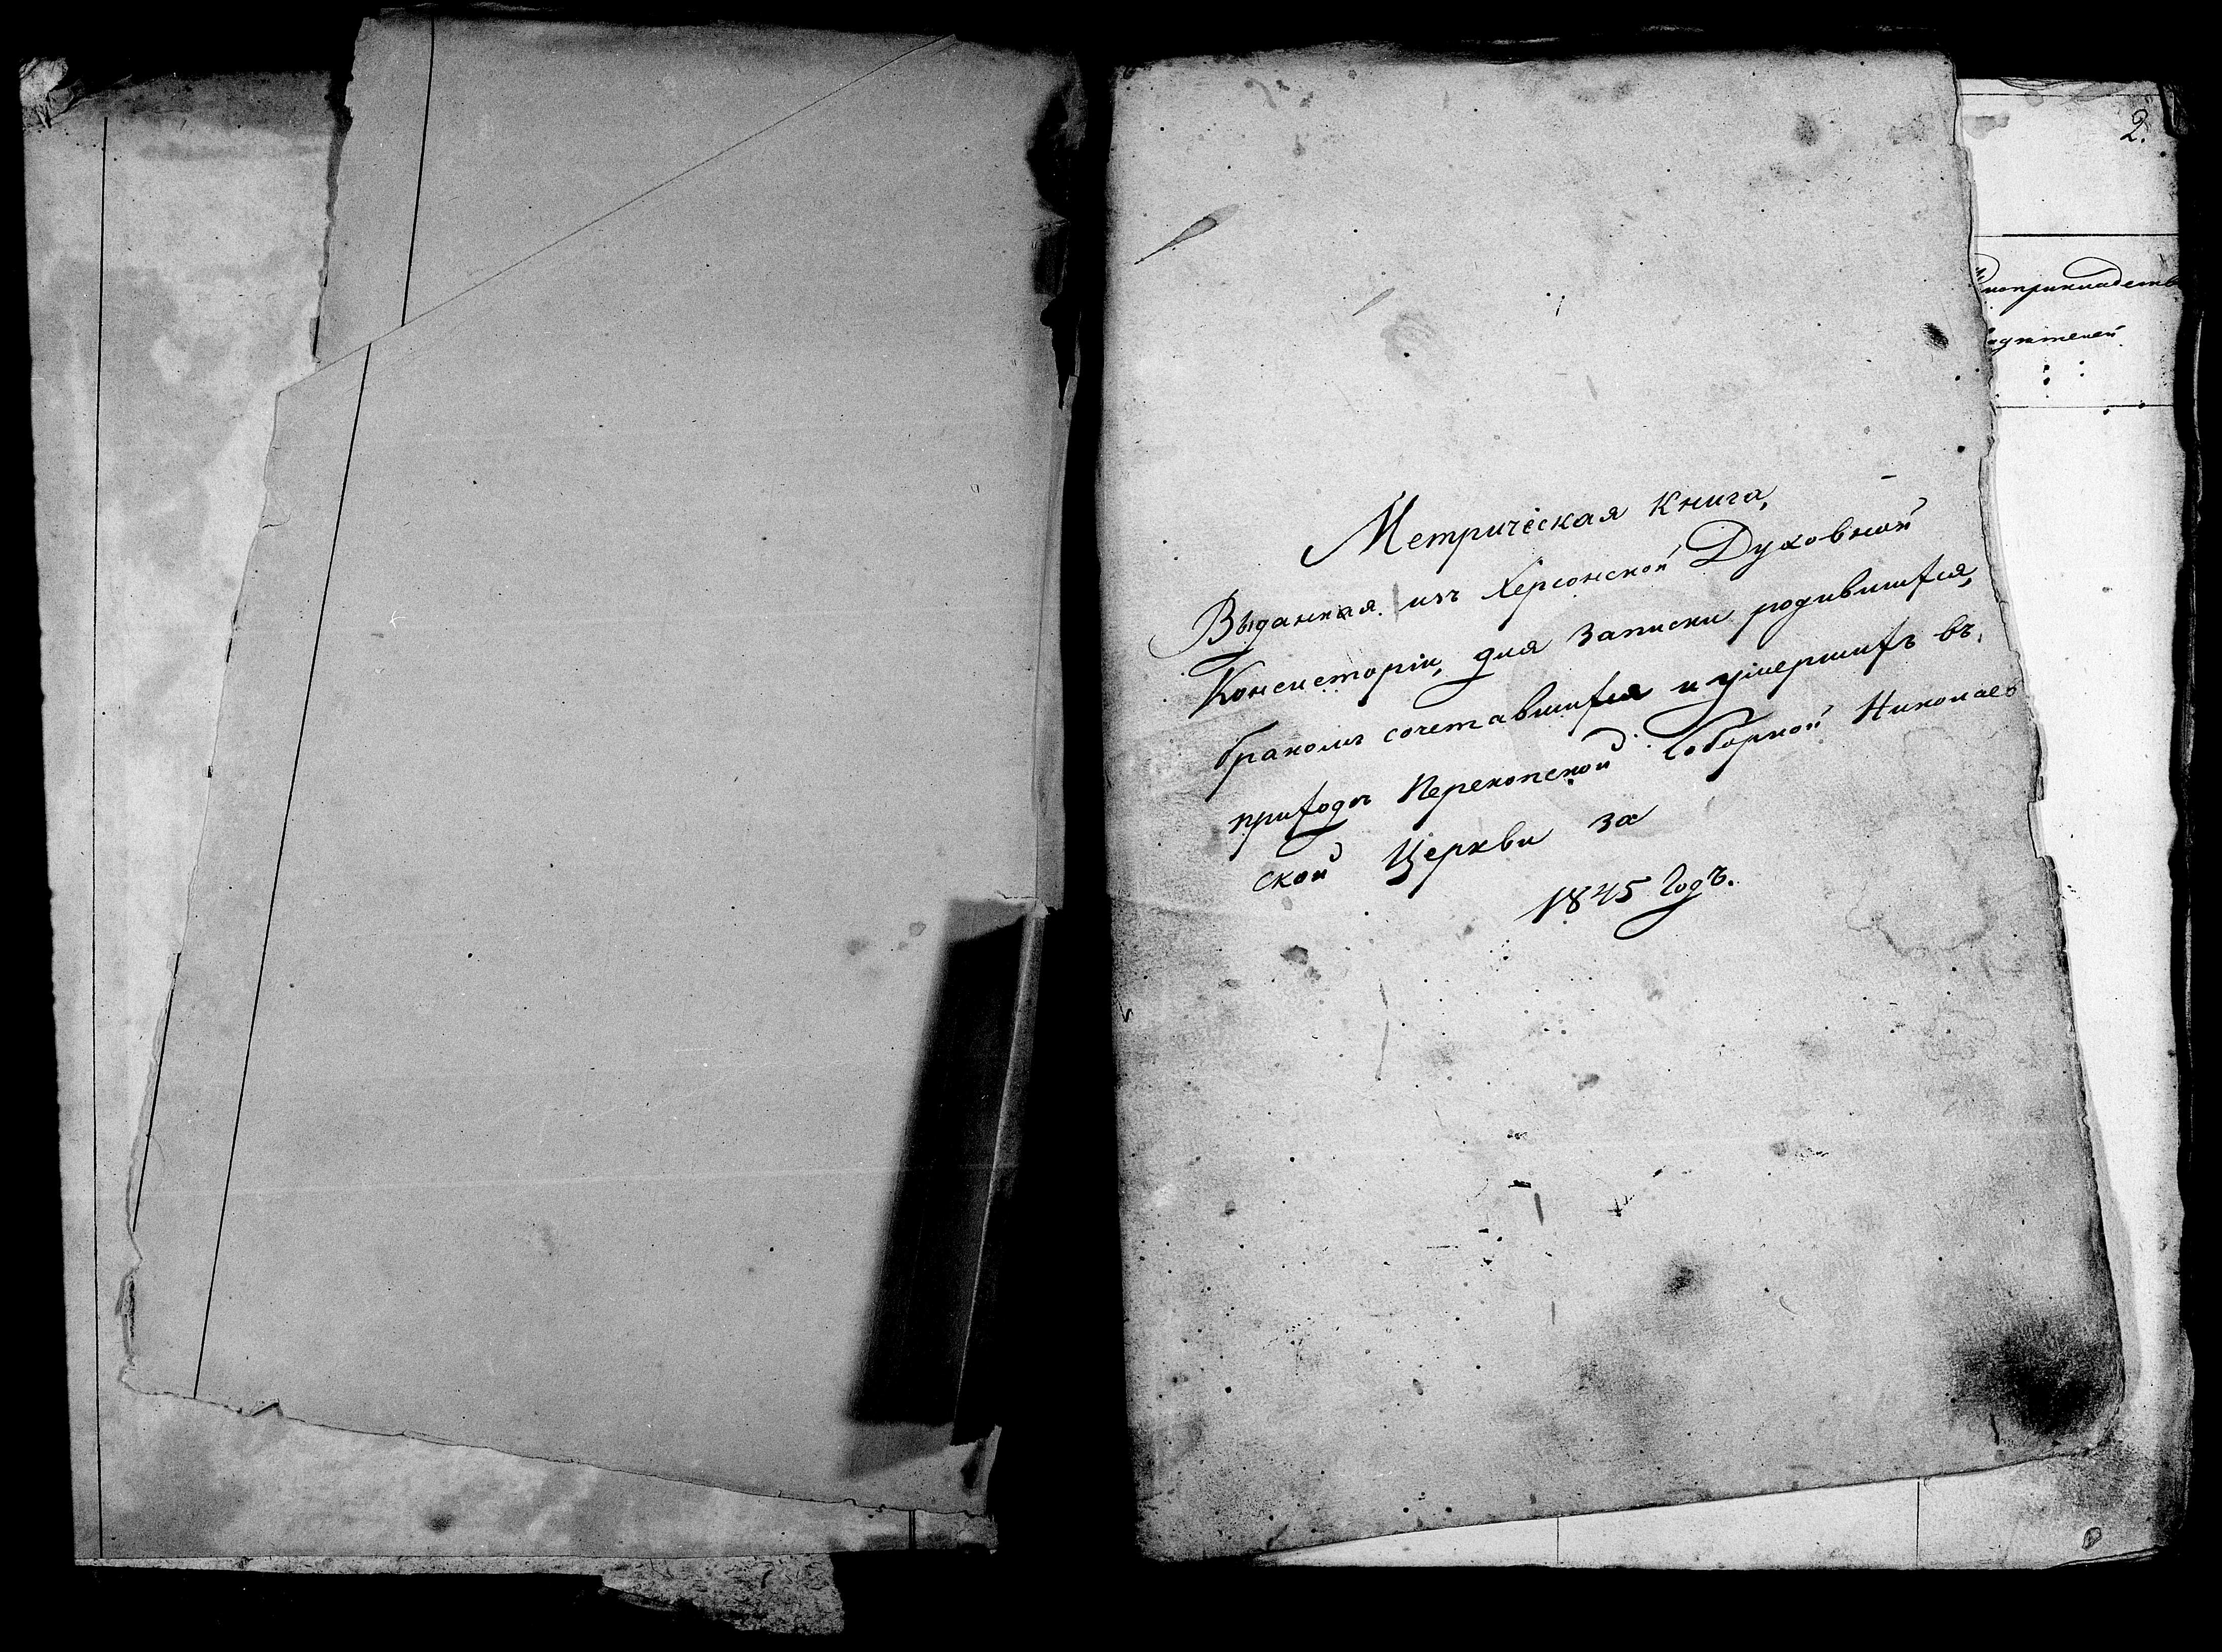 2.
Метрическая книга,
Выданная изъ Херсонской Духовной
Консисторіи, для записки родившихся,
бракомъ сочетавшихся и умершихъ въ
приходѣ Перекопской Соборной Николаев
ской Церкви за
1845 Годъ.